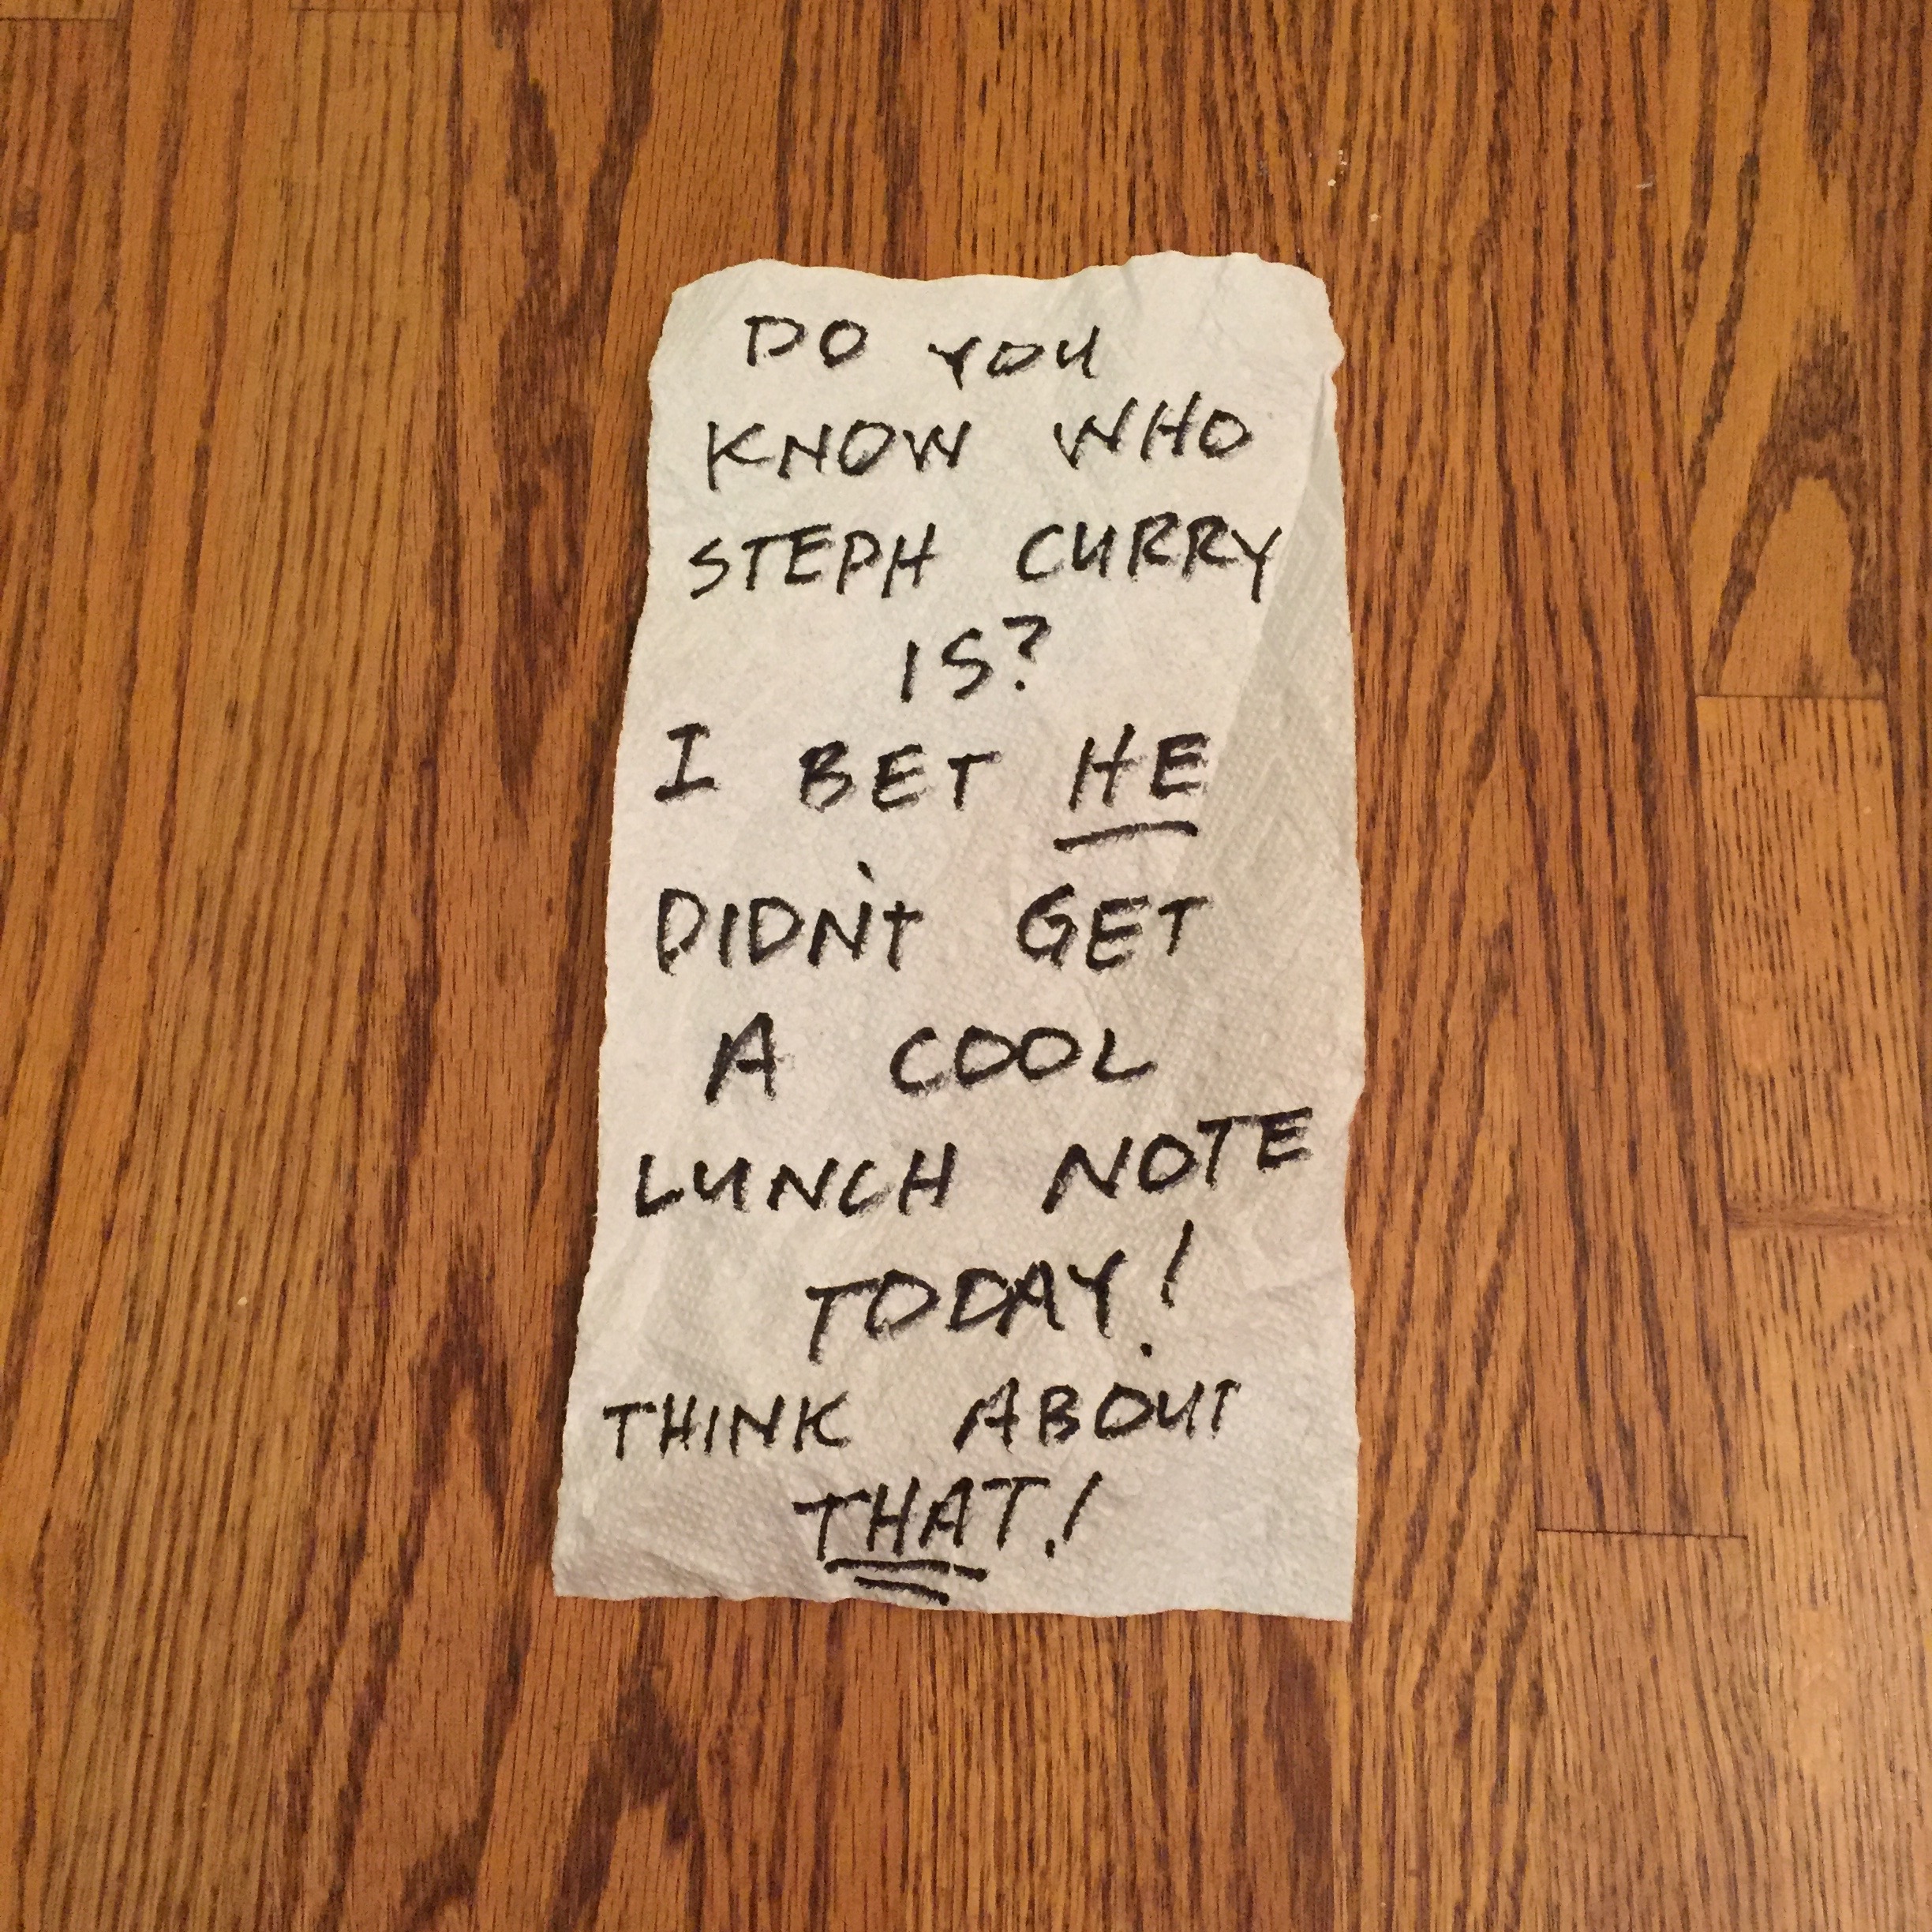 DO YOU
KNOW WHO
STEPH CURRY
IS?
I BET HE
DIDN'T GET
A COOL
LUNCH NOTE
TODAY!
THINK ABOUT
THAT!